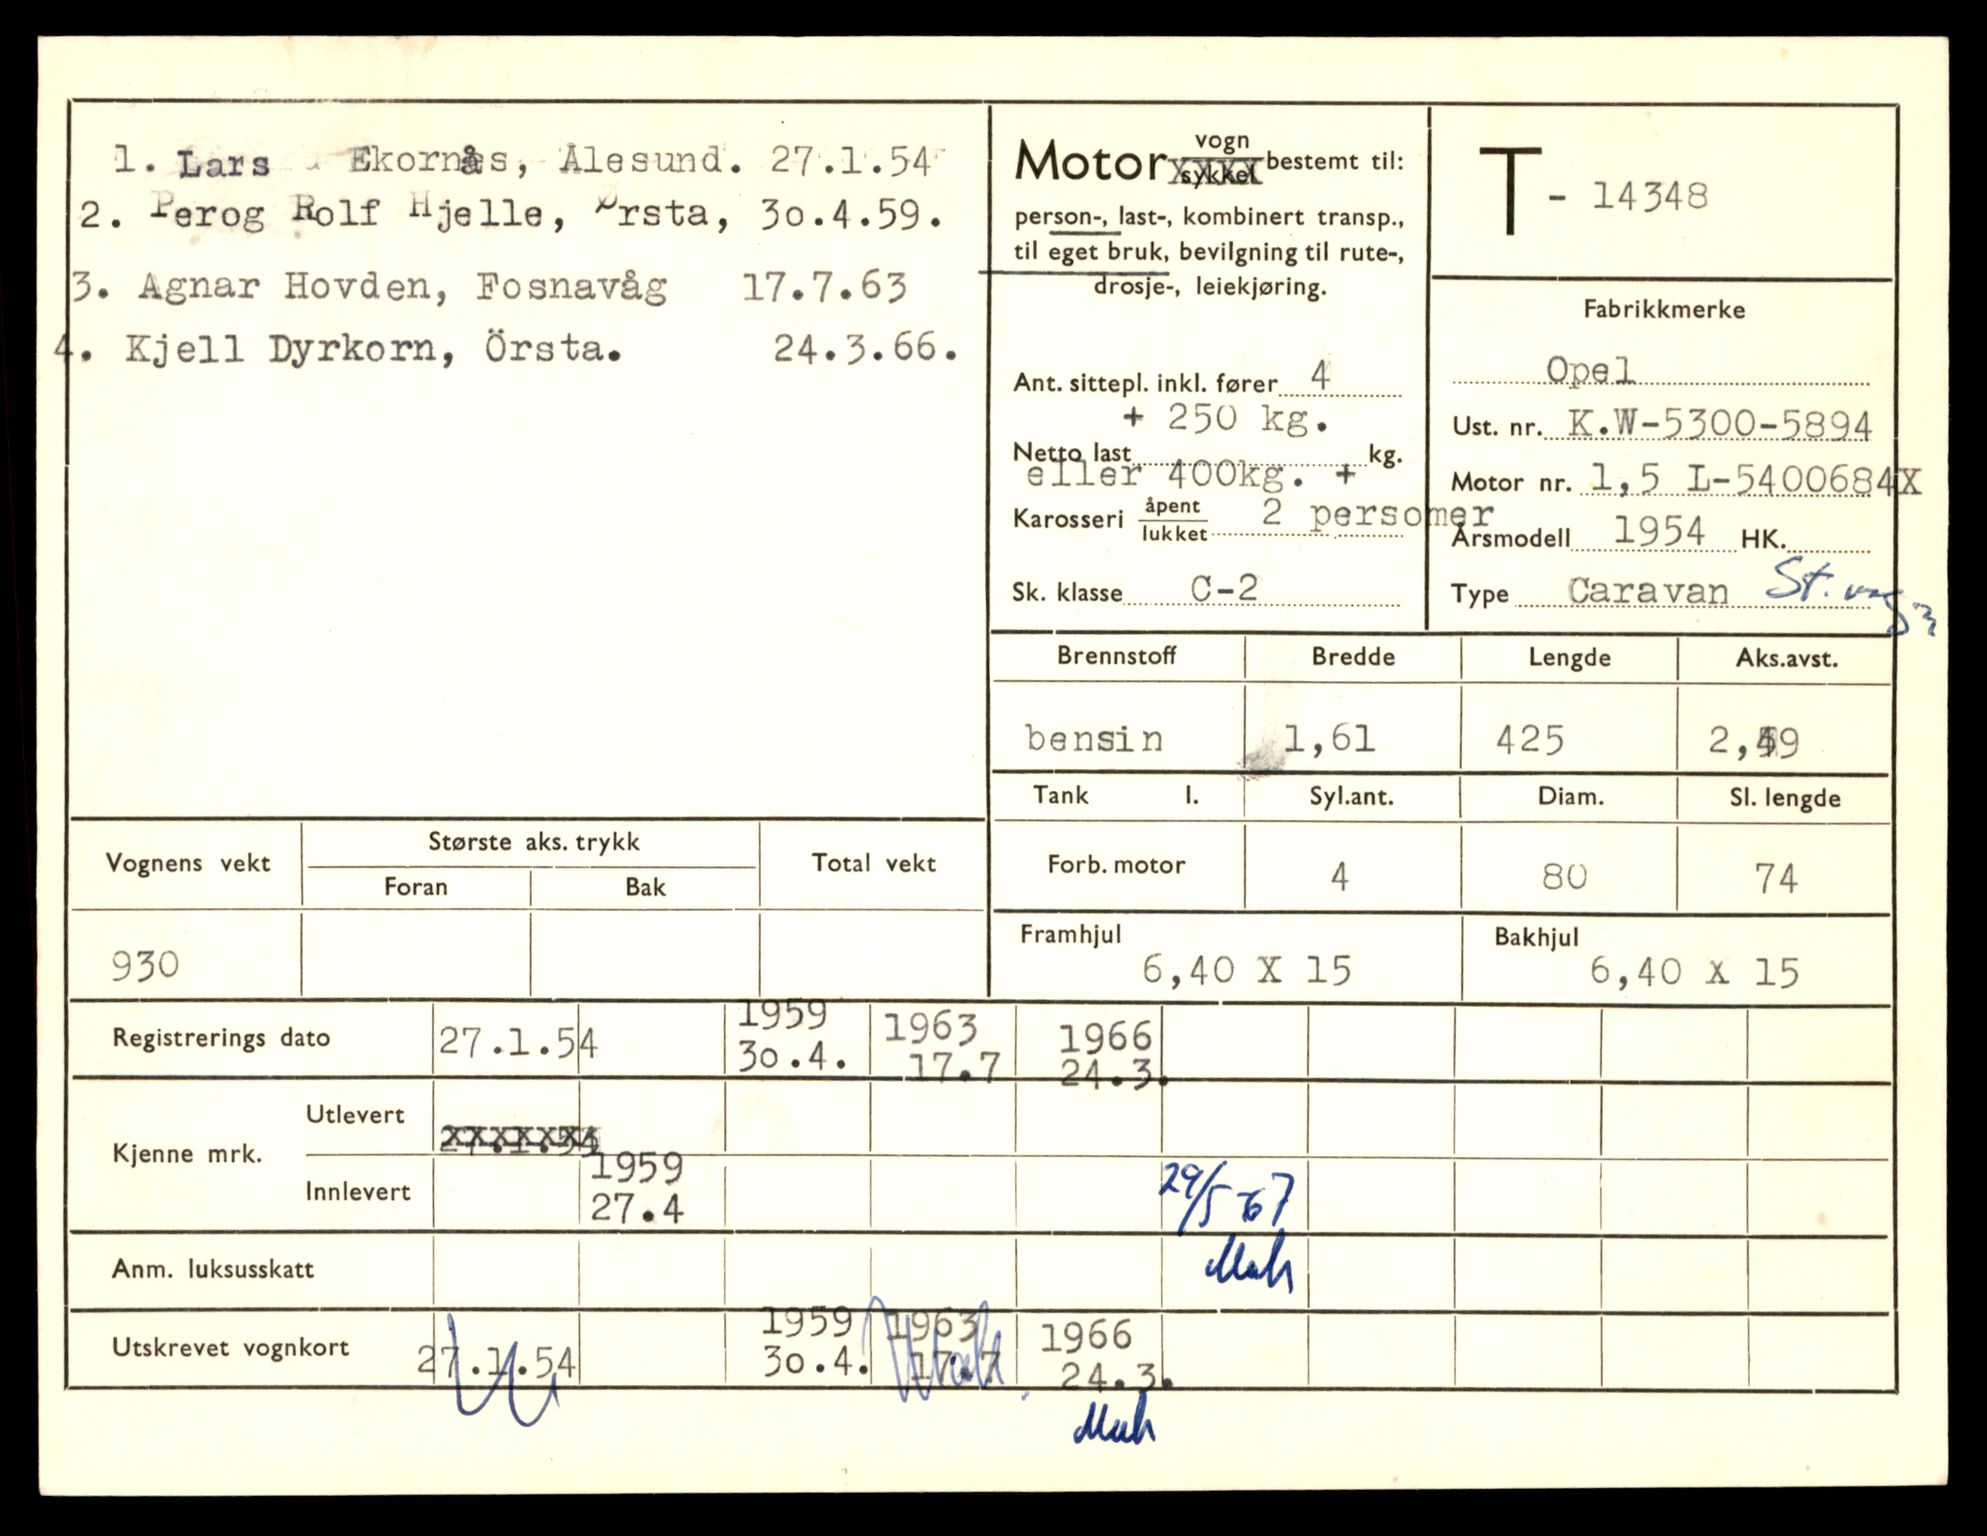 1. Lars Ekornås, Ålesund. 27.1.54
2. Perog Rolf Hjelle, Ørsta, 3o.4.59.
3. Agnar Hovden, Fosnavåg 17.7.63
4. Kjell Dyrkorn, Örsta. 24.3.66.
Motor vogn sykkel bestemt til:
person-, last-, kombinert transp.,
til eget bruk, bevilgning til rute-,
drosje-, leiekjøring.
Ant. sittepl. inkl. fører 4
+ 250 kg.
Netto last kg.
eller 400kg. +
Karosseri åpent lukket 2 personer
Sk. klasse C-2
T - 14348
Fabrikkmerke
Opel
Ust. nr. K.W-5300-5894
Motor nr. 1,5 L-5400684X
Årsmodell 1954 HK.
Type Caravan St.
Brennstoff Bredde Lengde Aks.avst.
bensin 1,61 425 2,49
Tank l. Syl.ant. Diam. Sl. lengde
Forb. motor 4 80 74
Framhjul Bakhjul
6,40 X 15 6,40 X 15
Vognens vekt Største aks. trykk Total vekt
Foran Bak
930
Registrerings dato 27.1.54 1959 3o.4. 1963 17.7 1966 24.3.
Kjenne mrk. Utlevert 27.1.54
Innlevert 1959 27.4 29/5-67
Anm. luksusskatt
Utskrevet vognkort 27.1.54 1959 3o.4. 1963 17.7 1966 24.3.